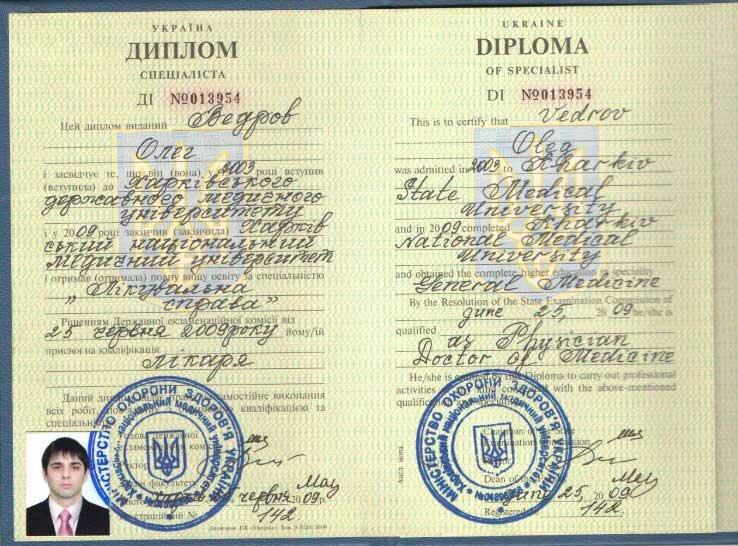 УКРАЇНА
ДИПЛОМ
СПЕЦІАЛІСТА
ДІ №013954
Цей диплом виданий Ведров
Олег
і засвідчує те, що він (вона) у 2003 році вступив
(вступила) до Харківського
державного медичного
університету
і у 2009 році закінчив (закінчила) Харків
ський національний
медичний університет
і отримав (отримала) повну вищу освіту за спеціальністю
"Лікувальна
справа"
Рішенням Державної екзаменаційної комісії від
25 червня 2009 року йому/їй
присвоєна кваліфікація
лікаря
Даний диплом дає право самостійне виконання
всіх робіт, кваліфікацією та
спеціальні
МІНІСТЕРСТВО ОХОРОНИ ЗДОРОВ'Я УКРАЇНИ
Харківський національний медичний університет
червня 2009 р.
142
UKRAINE
DIPLOMA
OF SPECIALIST
DI №013954
This is to certify that Vedrov
Oleg
was admitted in 2003 to Kharkiv
State Medical
University
and in 2009 completed Kharkiv
National Medical
University
and obtained the complete higher education in speciality
General Medicine
By the Resolution of the State Examination Commission of
june 25, 2009 he/she is
qualified as Physician
Doctor of Medicine
He/she is entitled by this Diploma to carry out professional
activities of any kind connected with the above-mentioned
qualification and speciality
МІНІСТЕРСТВО ОХОРОНИ ЗДОРОВ'Я УКРАЇНИ
Харківський національний медичний університет
Chairman of the State
Examination Commission
Dean of the
25, 2009
Registered № 142